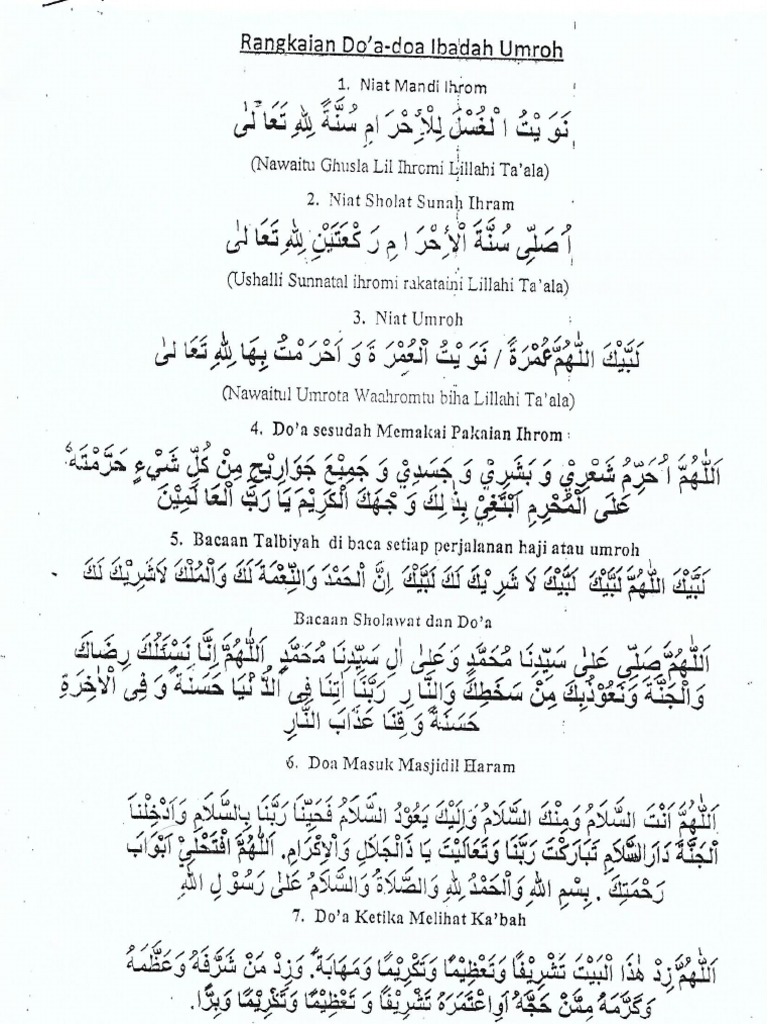 Rangkaian Do'a-doa Ibadah Umroh
1. Niat Mandi Ihrom
نَوَيْتُ الْغُسْلَ لِلْأِحْرَامِ سُنَّةً لِلّٰهِ تَعَالَىٰ
(Nawaitu Ghusla Lil Ihromi Lillahi Ta'ala)
2. Niat Sholat Sunah Ihram
اُصَلِّى سُنَّةَ الْأِحْرَامِ رَكْعَتَيْنِ لِلّٰهِ تَعَالىٰ
(Ushalli Sunnatal ihromi rakataini Lillahi Ta'ala)
3. Niat Umroh
لَبَّيْكَ اللّٰهُمَّ عُمْرَةً / نَوَيْتُ الْعُمْرَةَ وَاَحْرَمْتُ بِهَا لِلّٰهِ تَعَالىٰ
(Nawaitul Umrota Waahromtu biha Lillahi Ta'ala)
4. Do'a sesudah Memakai Pakaian Ihrom :
اَللّٰهُمَّ اُحَرِّمُ شَعْرِيْ وَبَشَرِيْ وَجَسَدِيْ وَجَمِيْعَ جَوَارِيْحِ مِنْ كُلِّ شَيْءٍ حَرَّمْتَهُ
عَلَى الْمُحْرِمِ اَبْتَغِيْ بِذٰلِكَ وَجْهَكَ الْكَرِيْمَ يَا رَبَّ الْعَالَمِيْنَ
5. Bacaan Talbiyah di baca setiap perjalanan haji atau umroh
لَبَّيْكَ اللّٰهُمَّ لَبَّيْكَ لَبَّيْكَ لَا شَرِيْكَ لَكَ لَبَّيْكَ اِنَّ الْحَمْدَ وَالنِّعْمَةَ لَكَ وَالْمُلْكَ لَاشَرِيْكَ لَكَ
Bacaan Sholawat dan Do'a
اَللّٰهُمَّ صَلِّى عَلىٰ سَيِّدِنَا مُحَمَّدٍ وَعَلىٰ اٰلِ سَيِّدِنَا مُحَمَّدٍ اَللّٰهُمَّ اِنَّا نَسْئَلُكَ رِضَاكَ
وَالْجَنَّةَ وَنَعُوْذُبِكَ مِنْ سَخَطِكَ وَالنَّارِ رَبَّنَا اٰتِنَا فِى الدُّنْيَا حَسَنَةً وَفِى الْاٰخِرَةِ
حَسَنَةً وَقِنَا عَذَابَ النَّارِ
6. Doa Masuk Masjidil Haram
اَللّٰهُمَّ اَنْتَ السَّلَامُ وَمِنْكَ السَّلَامُ وَاِلَيْكَ يَعُوْدُ السَّلَامُ فَحَيِّنَا رَبَّنَا بِالسَّلَامِ وَاَدْخِلْنَا
الْجَنَّةَ دَارَالسَّلَامِ تَبَارَكْتَ رَبَّنَا وَتَعَالَيْتَ يَا ذَالْجَلَالِ وَالْاِكْرَامِ. اَللّٰهُمَّ افْتَحْلِيْ اَبْوَابَ
رَحْمَتِكَ . بِسْمِ اللهِ وَالْحَمْدُ لِلّٰهِ وَالصَّلَاةُ وَالسَّلَامُ عَلىٰ رَسُوْلِ اللهِ
7. Do'a Ketika Melihat Ka'bah
اَللّٰهُمَّ زِدْ هٰذَا الْبَيْتَ تَشْرِيْفًا وَتَعْظِيْمًا وَتَكْرِيْمًا وَمَهَابَةً. وَزِدْ مَنْ شَرَّفَهُ وَعَظَّمَهُ
وَكَرَّمَهُ مِمَّنْ حَجَّهُ اَوِاعْتَمَرَهُ تَشْرِيْفًا وَتَعْظِيْمًا وَتَكْرِيْمًا وَبِرًّا.